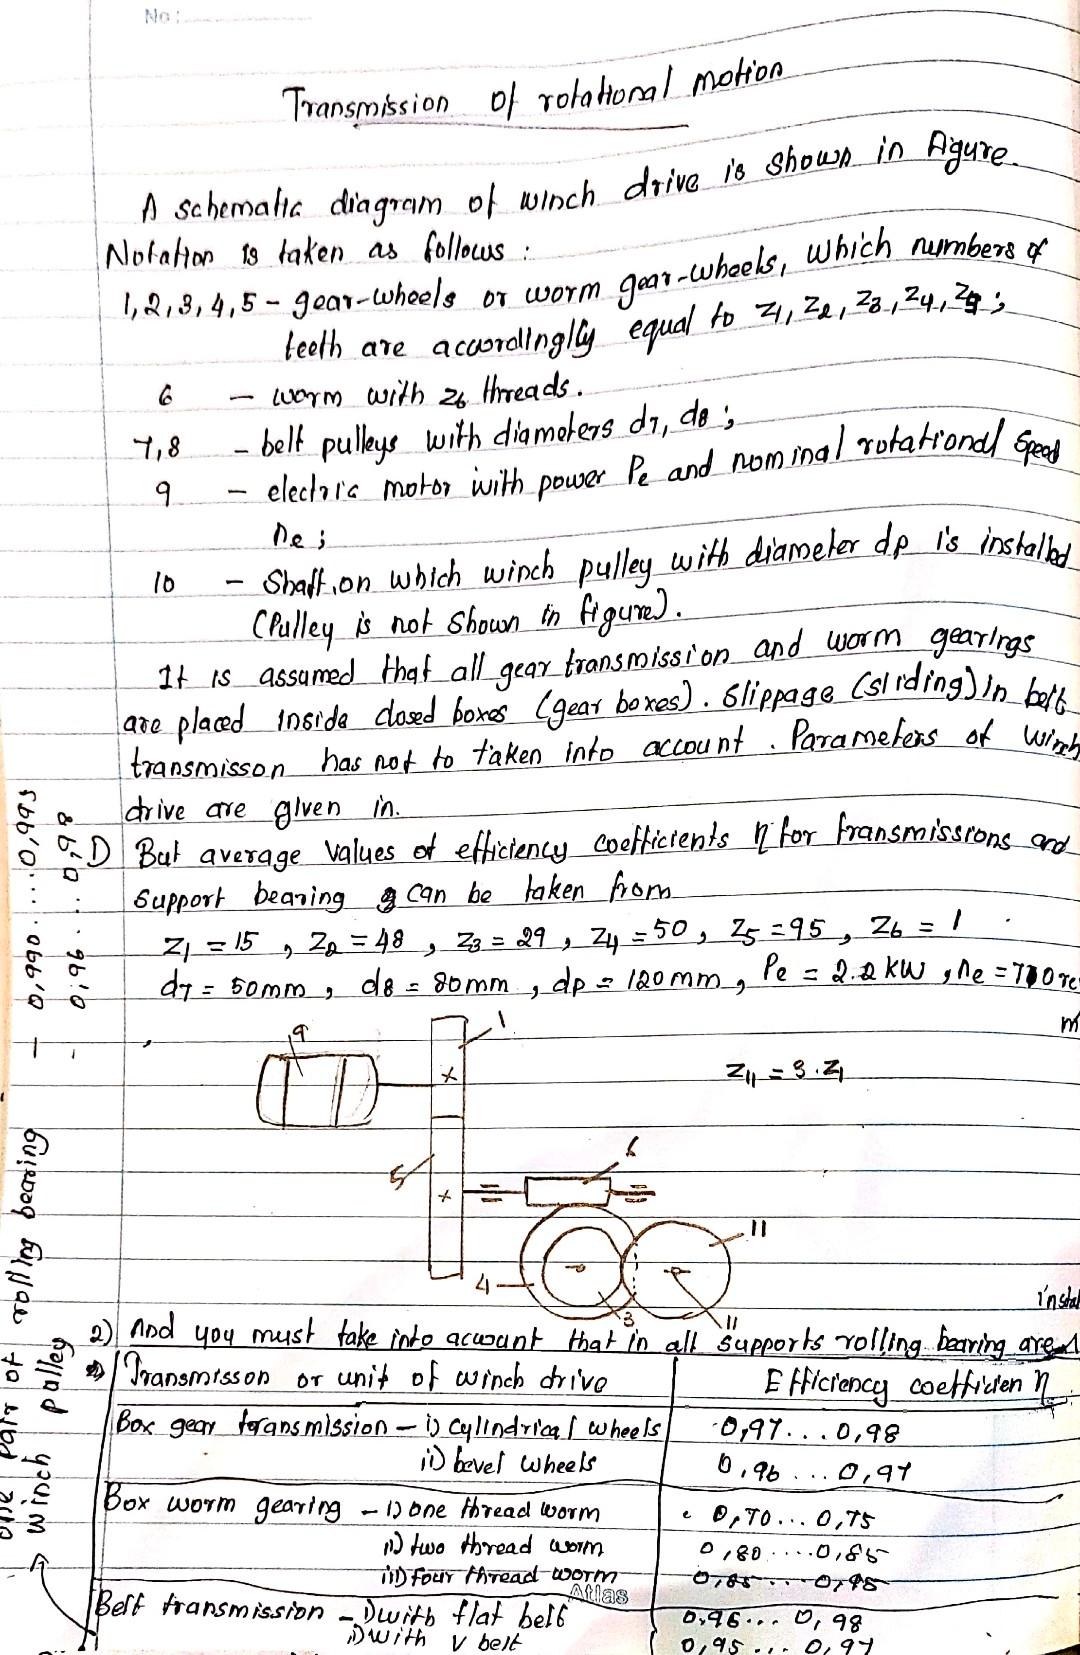 No :
Transmission of rotational motion
A schematic diagram of winch drive is shown in figure.
Notation is taken as follows :
1,2,3,4,5 - gear-wheels or worm gear-wheels, which numbers of
teeth are accordinglly equal to z1, z2, z3, z4, z5 ;
6 - worm with z6 threads.
7,8 - belt pulleys with diameters d7, d8 ;
9 - electric motor with power Pe and nominal rotational speed
ne ;
10 - Shaft, on which winch pulley with diameter dp is installed
(Pulley is not shown in figure).
It is assumed that all gear transmission and worm gearings
are placed inside closed boxes (gear boxes). Slippage (sliding) in belt
transmisson has not to taken into account. Parameters of winch
drive are given in.
1) But average values of efficiency coefficients η for transmissions and
support bearing can be taken from
Z1 = 15 , Z2 = 48 , Z3 = 29 , Z4 = 50 , Z5 = 95 , Z6 = 1
d7 = 50mm , d8 = 80mm , dp = 120mm , Pe = 2.2 kW , ne =
9
1
Z11 = 3.Z1
5
6
11
4
3
11
2) And you must take into account that in all supports rolling bearing are instal
Transmisson or unit of winch drive Efficiency coefficien η
Box gear transmission - i) cylindrical wheels 0,97...0,98
ii) bevel wheels 0,96 ... 0,97
Box worm gearing - i) one thread worm 0,70... 0,75
ii) two thread worm 0,80 ....0,85
iii) four thread worm
Atlas
Belt transmission - i) with flat belt 0.96... 0,98
ii) with V belt 0,95 ... 0,97
one pair of rolling bearing - 0,990....0,995
winch pulley - 0,96... 0,98